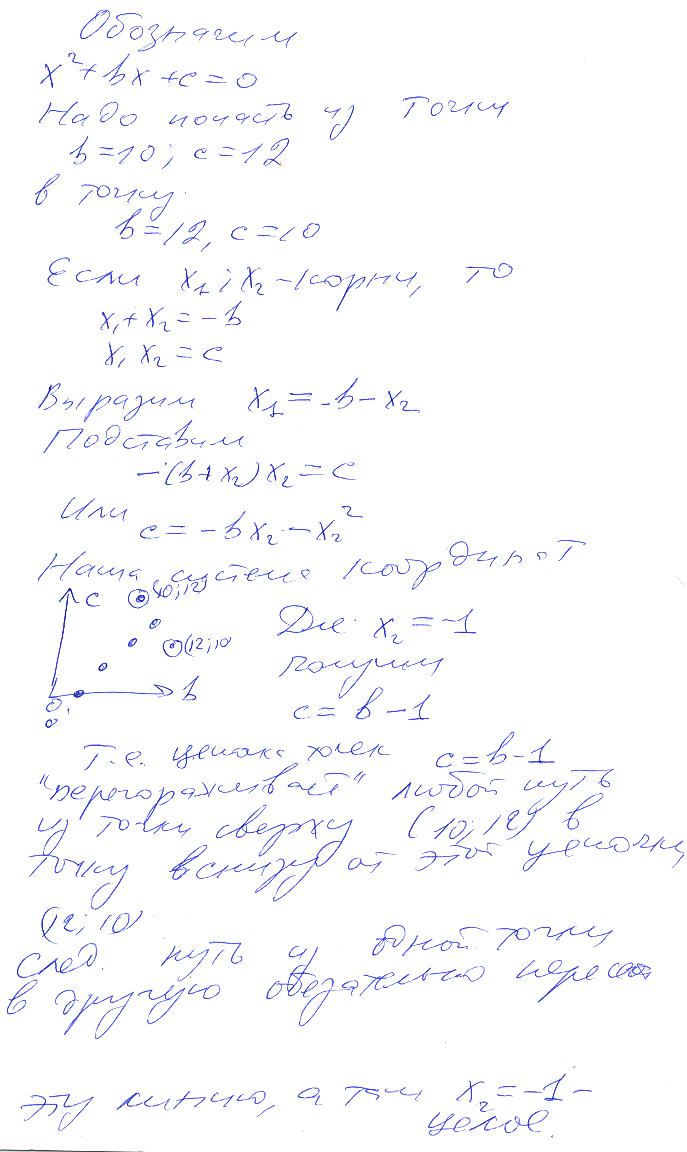 Обозначим
x²+bx+c=0
Надо попасть из точки
b=10; c=12
в точку
b=12, c=10
Если x₁; x₂ - корни, то
x₁+x₂=-b
x₁x₂=c
Выразим x₁=-b-x₂
Подставим
-(b+x₂)x₂=c
Или c=-bx₂-x₂²
Наша система координат
c (10;12)
(12;10
b
0
Для x₂=-1
получим
c=b-1
Т.е. цепочка точек c=b-1
"перегораживает" любой путь
из точки сверху (10;12) в
точку внизу от этой цепочки
(12;10)
след. путь из одной точки
в другую обязательно
эту линию, а там x₂=-1-
целое.